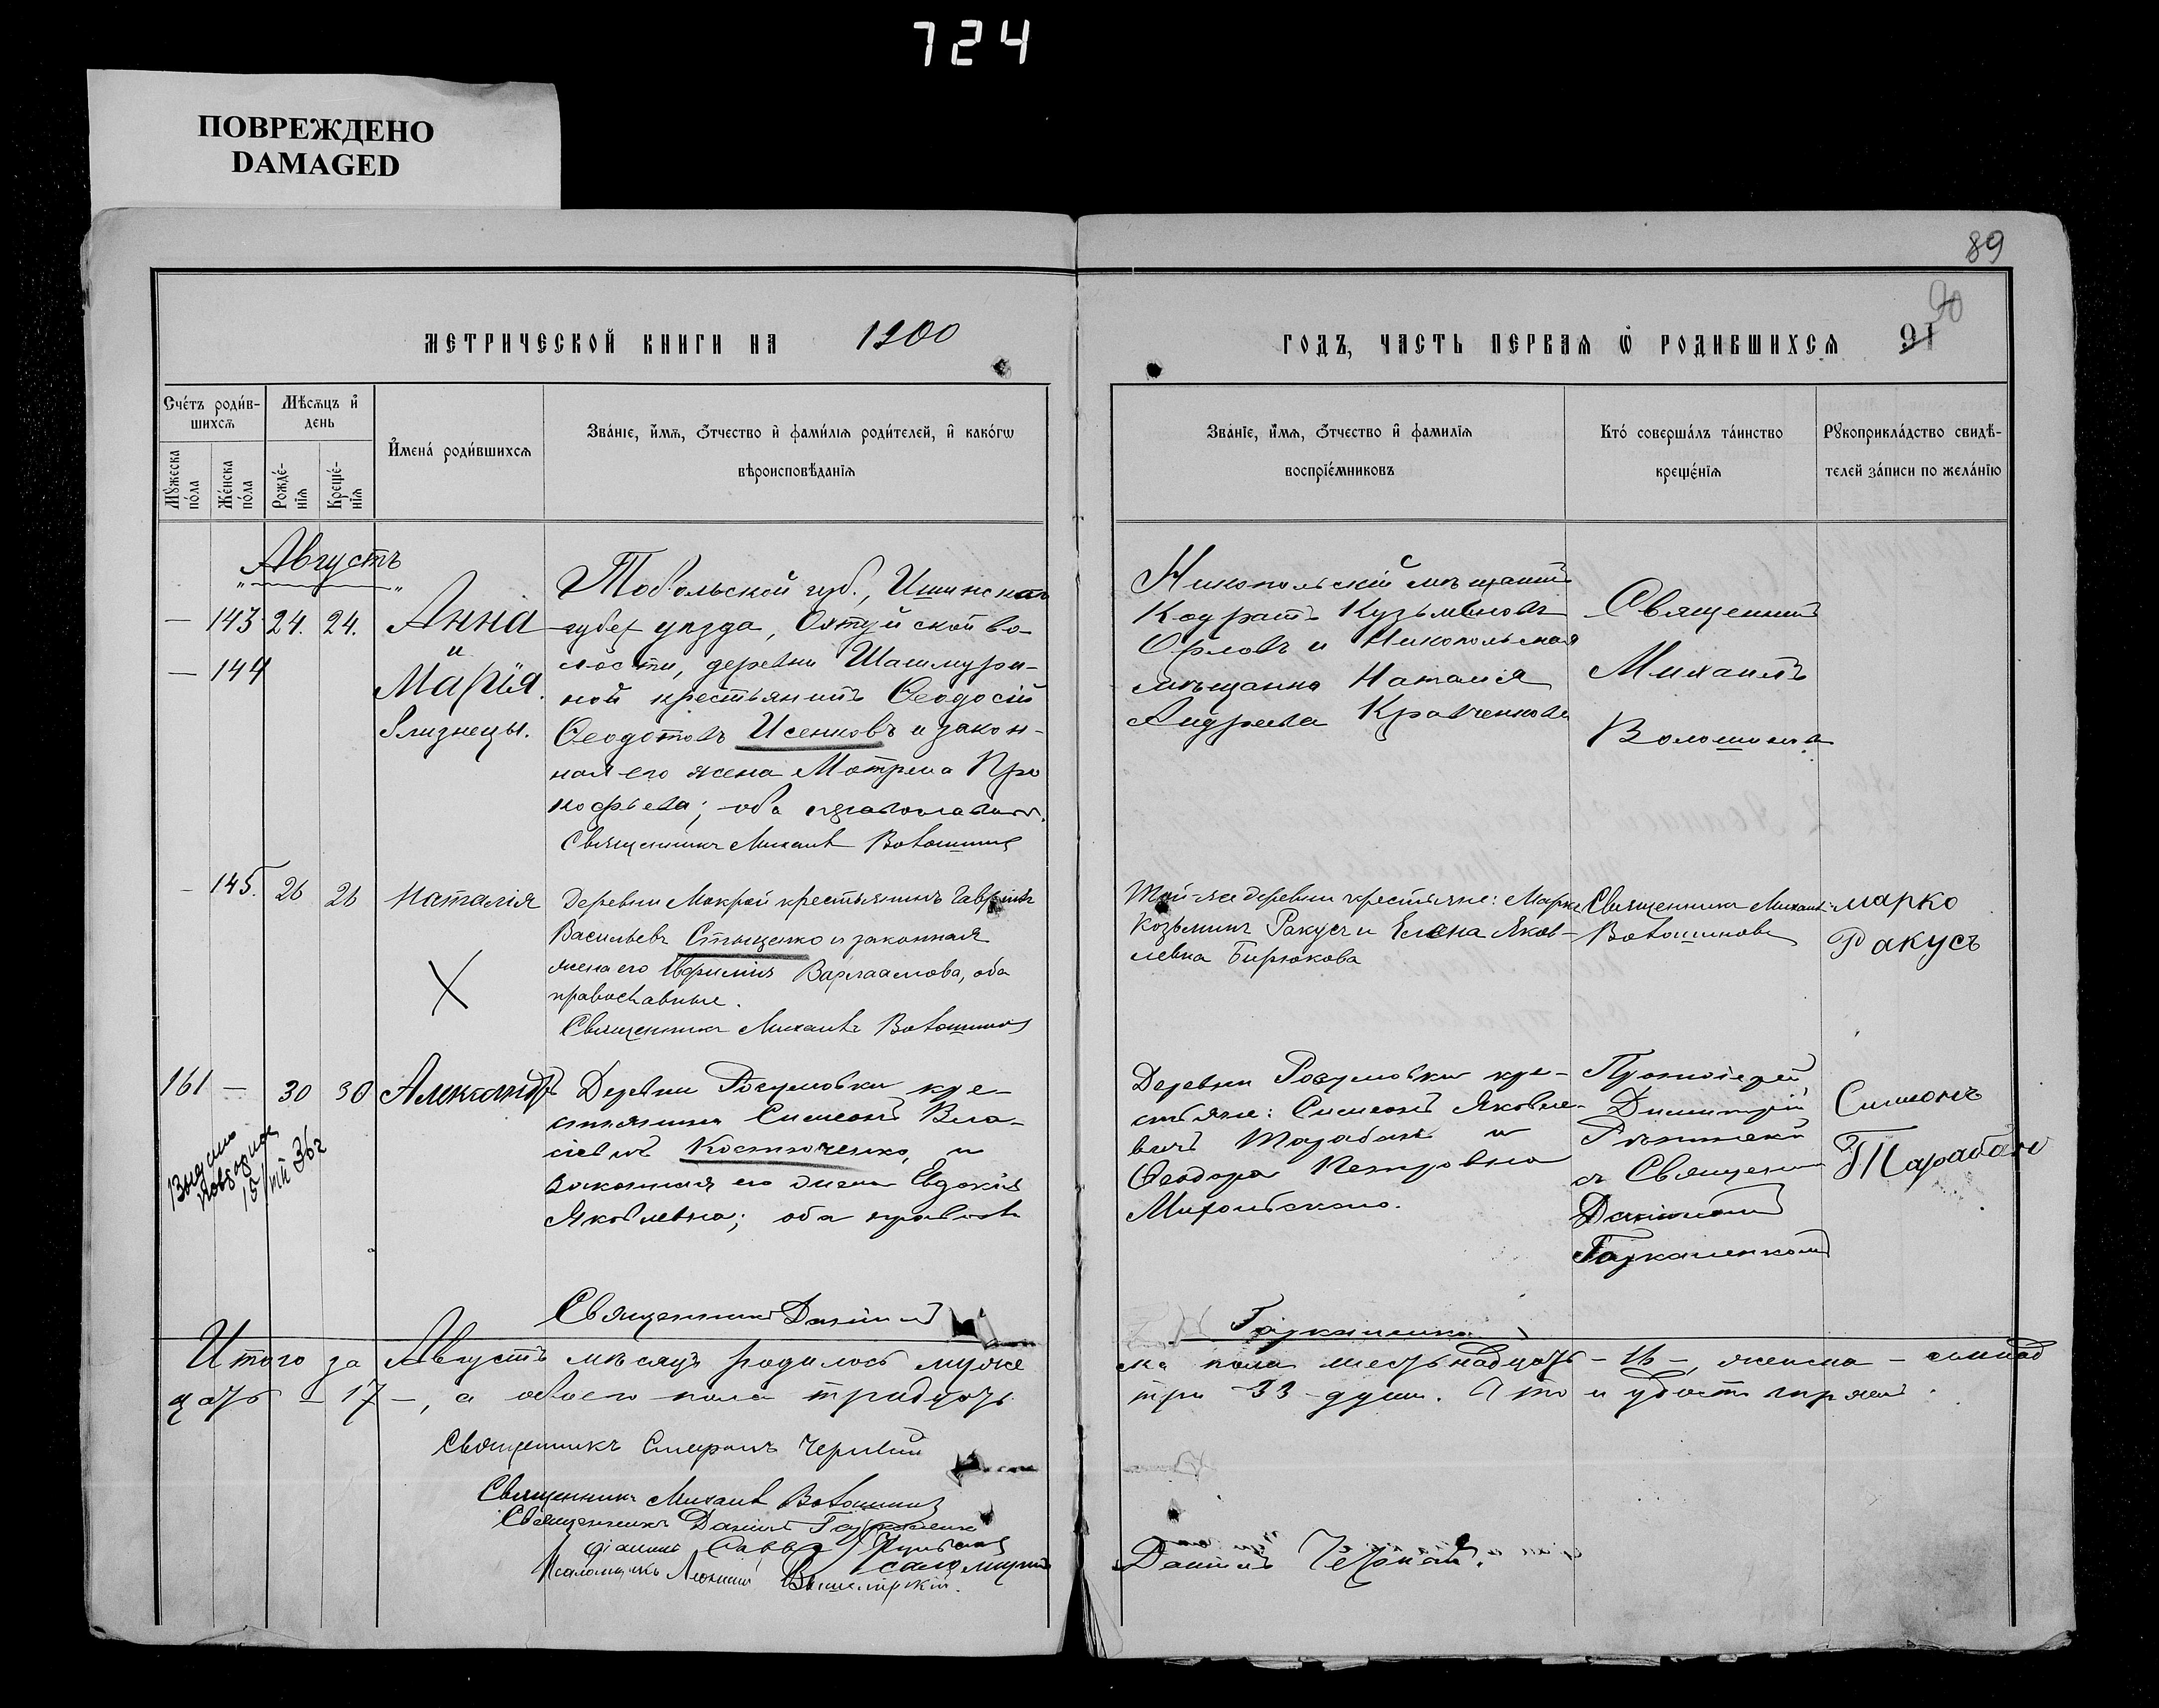 724
ПОВРЕЖДЕНО
DAMAGED
89
90
91
МЕТРИЧЕСКОЙ КНИГИ НА 1900
ГОДЪ, ЧАСТЬ ПЕРВАЯ Ѡ РОДИВШИХСЯ
Сче́тъ роди́в-
шихсѧ
Мѣсѧцъ и҆
день
И҆мена́ роди́вшихсѧ
Зва́нїе, и҆́мѧ, ѻ҆́тчество и҆ фами́лїѧ роди́телей, и҆ како́гѡ
вѣроисповѣ́данїѧ
Мꙋ́жеска
по́ла
Же́нска
по́ла
Рожде́-
нїѧ
Креще́-
нїѧ
Зва́нїе, и҆́мѧ, ѻ҆́тчество и҆ фамилїѧ
воспрїе́мниковъ
Кто́ соверша́лъ та́инство
креще́нїѧ
Рꙋкоприкла́дство свидѣ́-
телей за́писи по жела́нїю
Августъ
— 143 24. 24. Анна
и
— 144 Марія.
близнецы.
Тобольской губ., Ишимскаго
уѣзда, во-
лости, деревни
ной крестьянинъ Ѳеодосій
Ѳеодотовъ Исенковъ и закон-
ная его жена Матрена Про
кофьева; оба православн.
Священникъ Михаилъ Волошинъ
Никопольскій мѣщанинъ
Кодратъ Кузьминовъ
Орловъ и Никопольская
мѣщанка Наталія
Андреева Кравченкова
Священникъ
Михаилъ
Волошинъ
— 145. 26 26 Наталія
Деревни Мокрой крестьянинъ Гавріилъ
Васильевъ Стыценко и законная
жена его Евфимія Варлаамова, оба
православные.
Священникъ Михаилъ Волошинъ
Той-же деревни крестьяне: Марко
Козьминъ Ракусъ и Елена Яков-
левна Бирюкова
Священникъ Михаилъ
Волошиновъ
марко
Ракусъ
161 — 30 30 Александръ
Деревни Розумовки кре-
стьянинъ Симеонъ Вла-
сіевичъ Костюченко, и
законная его жена Евдокія
Яковлевна; оба правосл
Священникъ Даніилъ
Деревни Розумовки кре-
стьяне: Симеонъ Яковле-
вичъ Тарабанъ и
Ѳеодора Петровна
Протоіерей
Димитрій
съ Священ
Даніиломъ
Симеонъ
Тарабанъ
Выдано
15/ 36 г
Итого за Августъ мѣсяцъ родилось муже
ска пола шестьнадцать – 16 –, женска – семнад
цать – 17 –, а обоего пола тридцать
три 33 – души.
Священникъ Черный
Священникъ Михаилъ Волошинъ
Священникъ Даніилъ
Діаконъ Савва
Псаломщикъ
псаломщикъ
Даніилъ Черный.